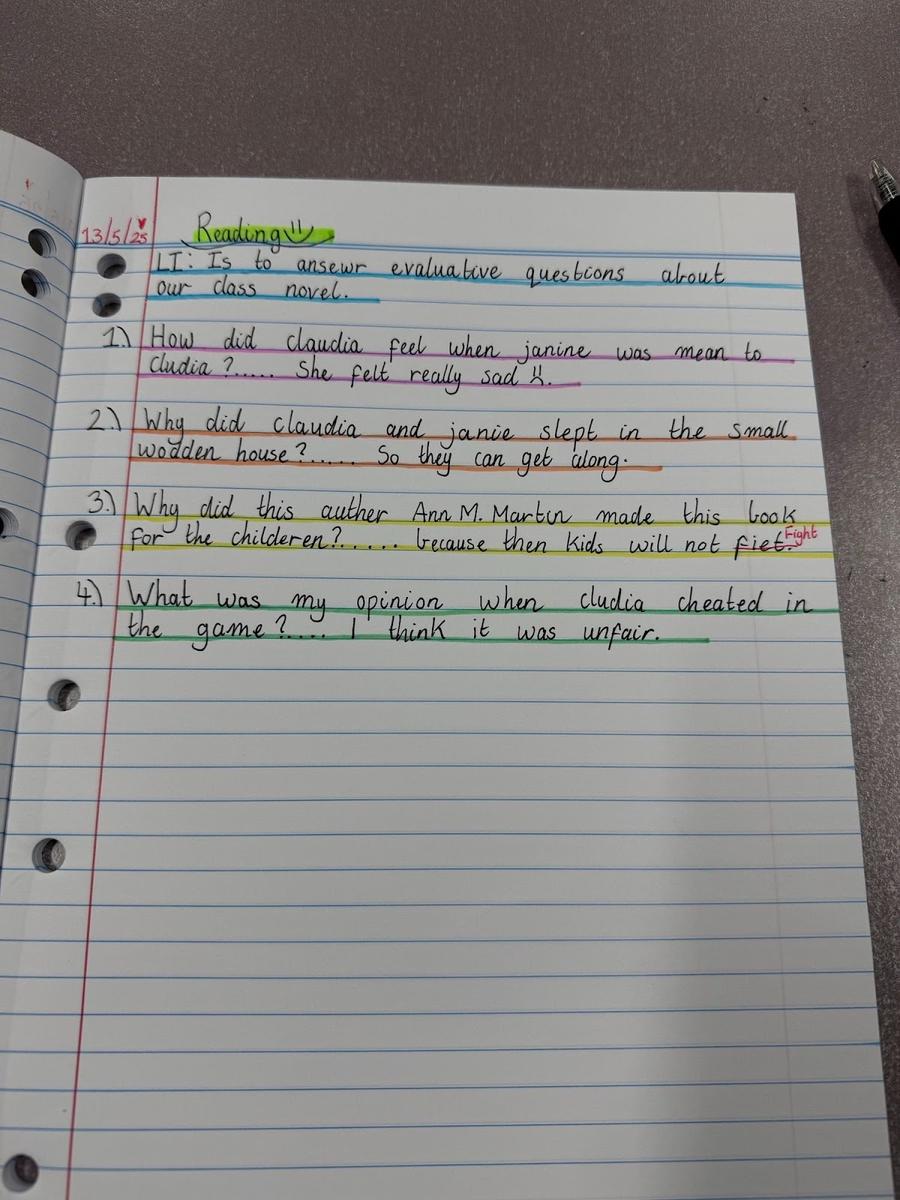 13/5/25 Reading
LI: Is to ansewr evaluative questions about
our class novel.
1.) How did claudia feel when janine was mean to
Cludia ?..... She felt really sad
2.) Why did claudia and janie slept in the small
wodden house ?...... So they can get along.
3.) Why did this auther Ann M. Martin made this book
for the childeren ?..... because then kids will not fiet. Fight
4.) What was my opinion when cludia cheated in
the game ?.... I think it was unfair.